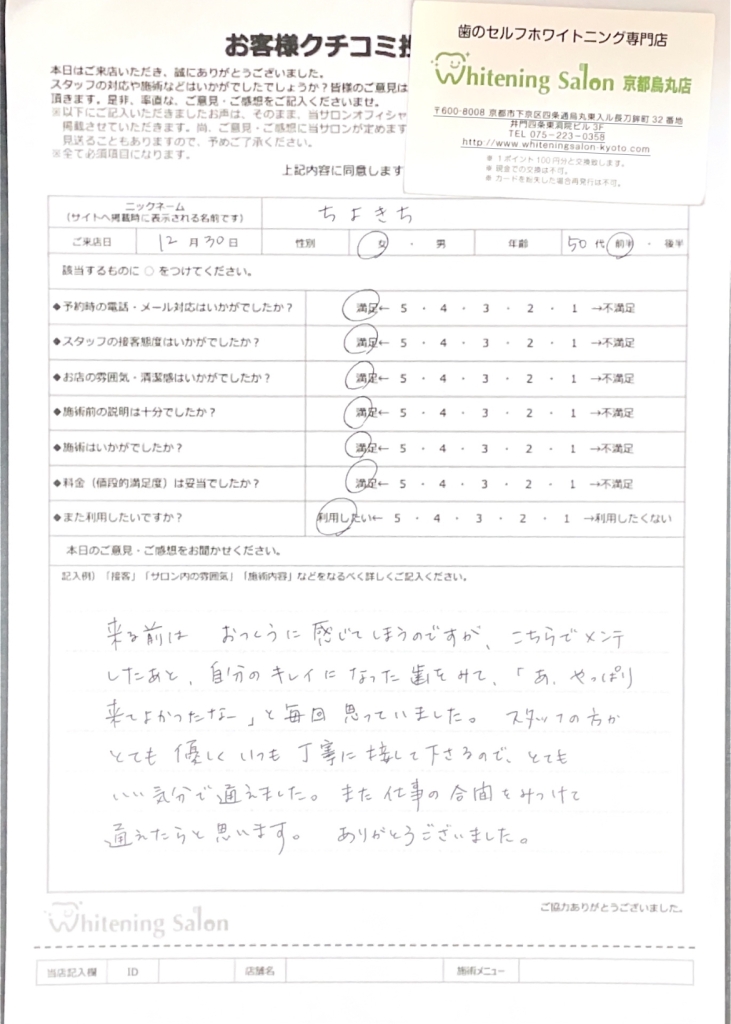 お客様クチコミ
本日はご来店いただき、誠にありがとうございました。
スタッフの対応や施術などはいかがでしたでしょうか?皆様のご意見は
頂きます。是非、率直な、ご意見・ご感想をご記入くださいませ。
※以下にご記入いただきましたお声は、そのまま、当サロンオフィシャ
掲載させていただきます。尚、ご意見・ご感想に当サロンが定めます
見送ることもありますので、予めご了承ください。
※全て必須項目になります。
上記内容に同意します
歯のセルフホワイトニング専門店
Whitening Salon 京都烏丸店
〒600-8008 京都市下京区四条通烏丸東入ル長刀鉾町32番地
井門四条東洞院ビル3F
TEL 075-223-0358
http://www.whiteningsalon-kyoto.com
※1ポイント100円分と交換致します。
※現金での交換は不可。
※カードを紛失した場合再発行は不可。
ニックネーム
(サイトへ掲載時に表示される名前です)
ちよきち
ご来店日 12月30日 性別 女・男 年齢 50代 前半・後半
該当するものに○をつけてください。
◆予約時の電話・メール対応はいかがでしたか? 満足← 5・4・3・2・1 →不満足
◆スタッフの接客態度はいかがでしたか? 満足← 5・4・3・2・1 →不満足
◆お店の雰囲気・清潔感はいかがでしたか? 満足← 5・4・3・2・1 →不満足
◆施術前の説明は十分でしたか? 満足← 5・4・3・2・1 →不満足
◆施術はいかがでしたか? 満足← 5・4・3・2・1 →不満足
◆料金(値段的満足度)は妥当でしたか? 満足← 5・4・3・2・1 →不満足
◆また利用したいですか? 利用したい← 5・4・3・2・1 →利用したくない
本日のご意見・ご感想をお聞かせください。
記入例)「接客」「サロン内の雰囲気」「施術内容」などをなるべく詳しくご記入ください。
来る前は おっくうに感じてしまうのですが、こちらでメンテ
したあと、自分のキレイになった歯をみて、「あ、やっぱり
来てよかったなー」と毎回思っていました。スタッフの方が
とても優しくいつも丁寧に接して下さるので、とても
いい気分で通えました。また仕事の合間をみつけて
通えたらと思います。 ありがとうございました。
ご協力ありがとうございました。
Whitening Salon
当店記入欄 ID 店舗名 施術メニュー